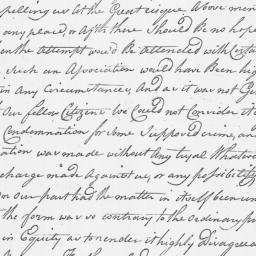 pelling us at the Great risque above men
any peace, or after there Should be no hope
en the attempt wou'd be attended with Certa
Such an Association would have been high
in any Circumstances, and as it was not Ge
of our fellow Citizens We Could not Consider it
Condemnation for Some Supposed crime, an
ation was made without any tryal Whatev
charge made against us, or any possibility
on our part had the matter in itself been un
the form was so contrary to the ordinary pr
in Equity as to render it highly Disagreea